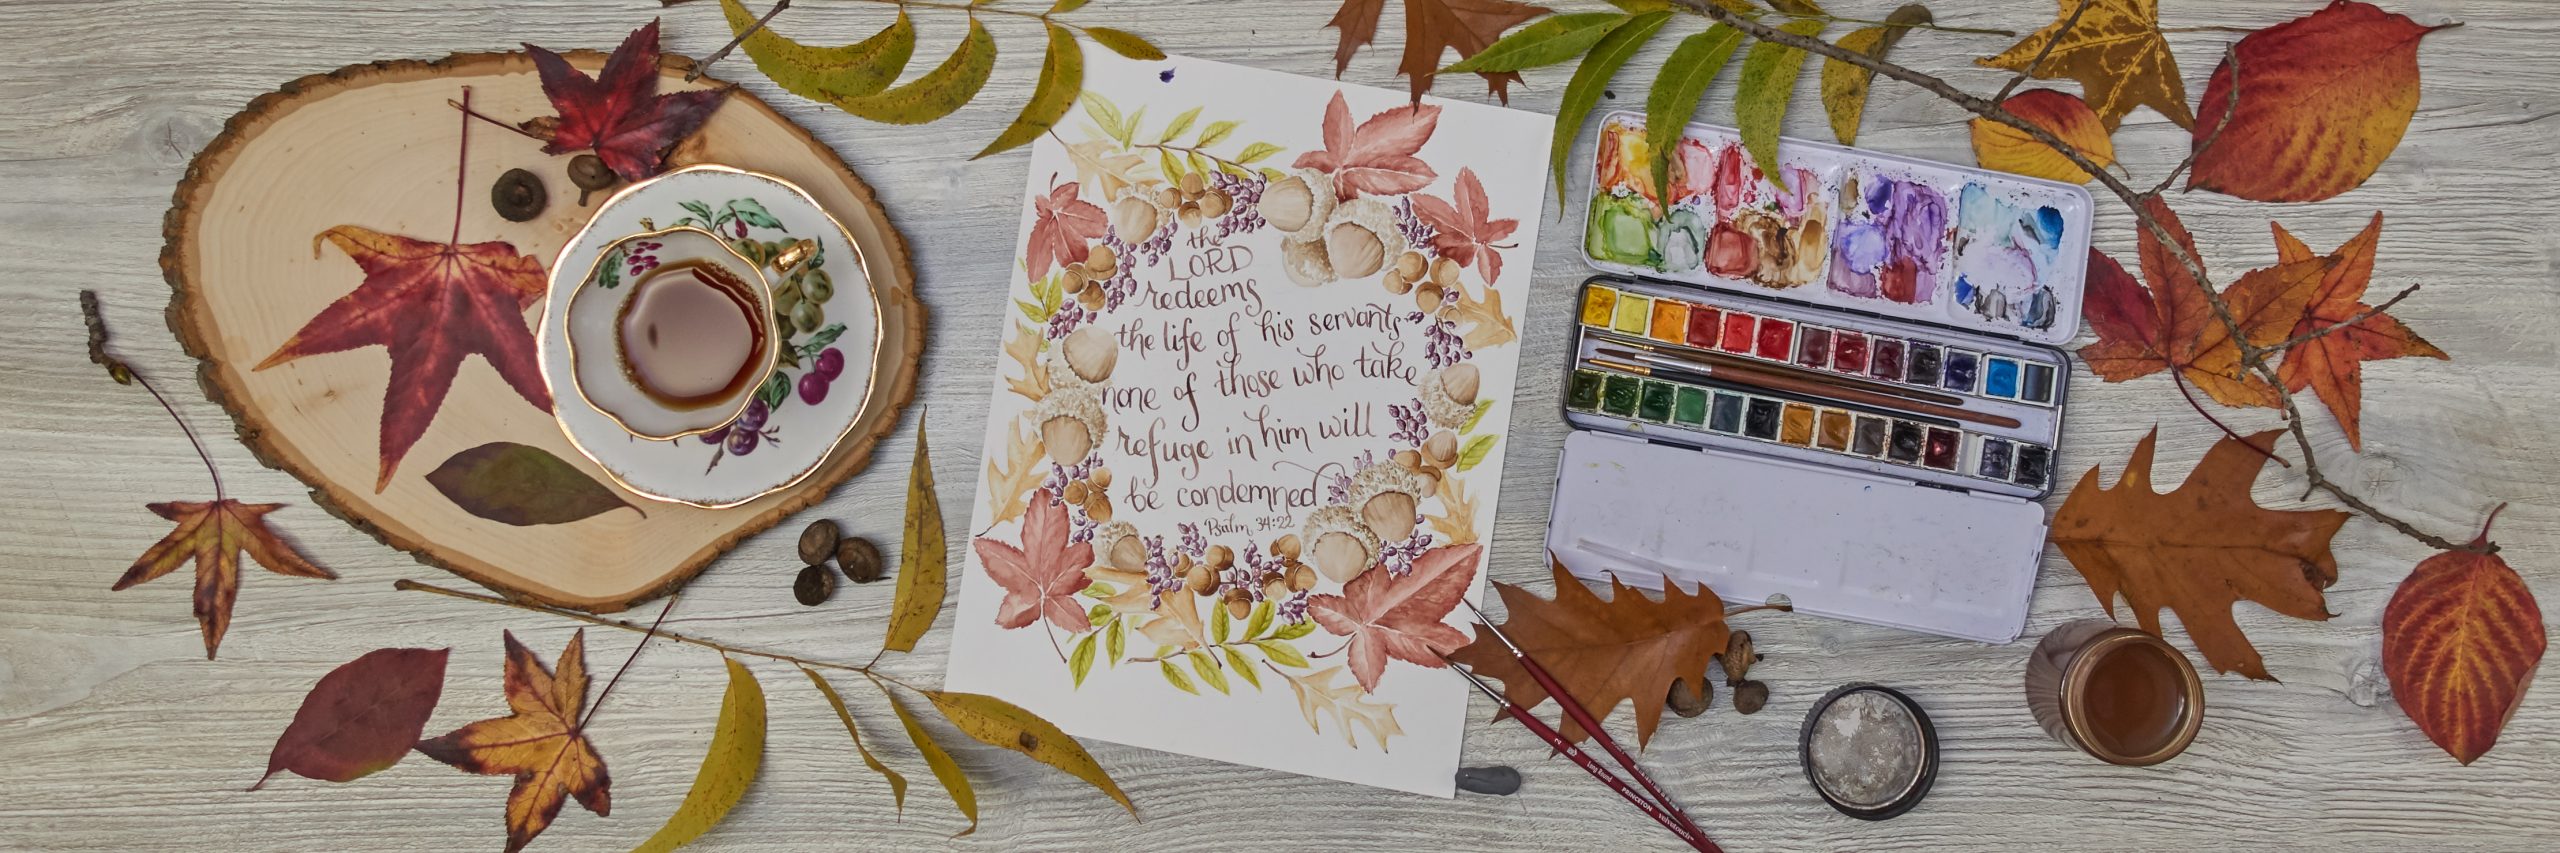 the
LORD
redeems
the life of his servants
none of those who take
refuge in him will
be condemned
Psalm 34:22
2 Long Round PRINCETON velvetouch